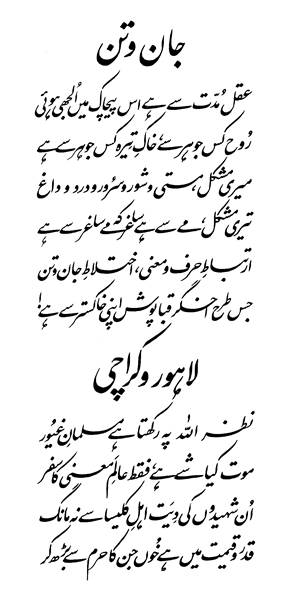 جان و تن
عقل مُدّت سے ہے اس پیچاک میں اُلجھی ہوئی
رُوح کس جوہر سے، خاکِ تیرہ کس جوہر سے ہے
میری مشکل، مستی و شور و سُرور و درد و داغ
تیری مشکل، مے سے ہے ساغر کہ مے ساغر سے ہے
ارتباطِ حرف و معنی، اختلاطِ جان و تن
جس طرح اخگر قبا پوش اپنی خاکستر سے ہے!
لاہور و کراچی
نظر اللہ پہ رکھتا ہے مسلمانِ غیُور
موت کیا شے ہے، فقط عالمِ معنی کا سفر
اُن شہیدوں کی دِیَت اہلِ کلیسا سے نہ مانگ
قدر و قیمت میں ہے خُوں جن کا حرم سے بڑھ کر